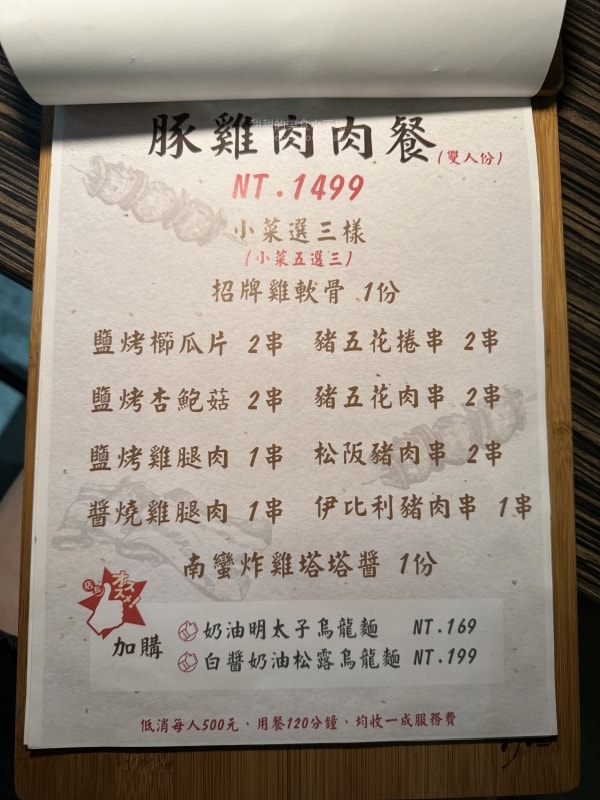 豚雞肉肉餐(雙人份)
NT.1499
小菜選三樣
(小菜五選三)
招牌雞軟骨 1份
鹽烤櫛瓜片 2串 豬五花捲串 2串
鹽烤杏鮑菇 2串 豬五花肉串 2串
鹽烤雞腿肉 1串 松阪豬肉串 2串
醬燒雞腿肉 1串 伊比利豬肉串 1串
南蠻炸雞塔塔醬 1份
店長
オススメ!
加購
奶油明太子烏龍麵 NT.169
白醬奶油松露烏龍麵 NT.199
低消每人500元、用餐120分鐘、均收一成服務費